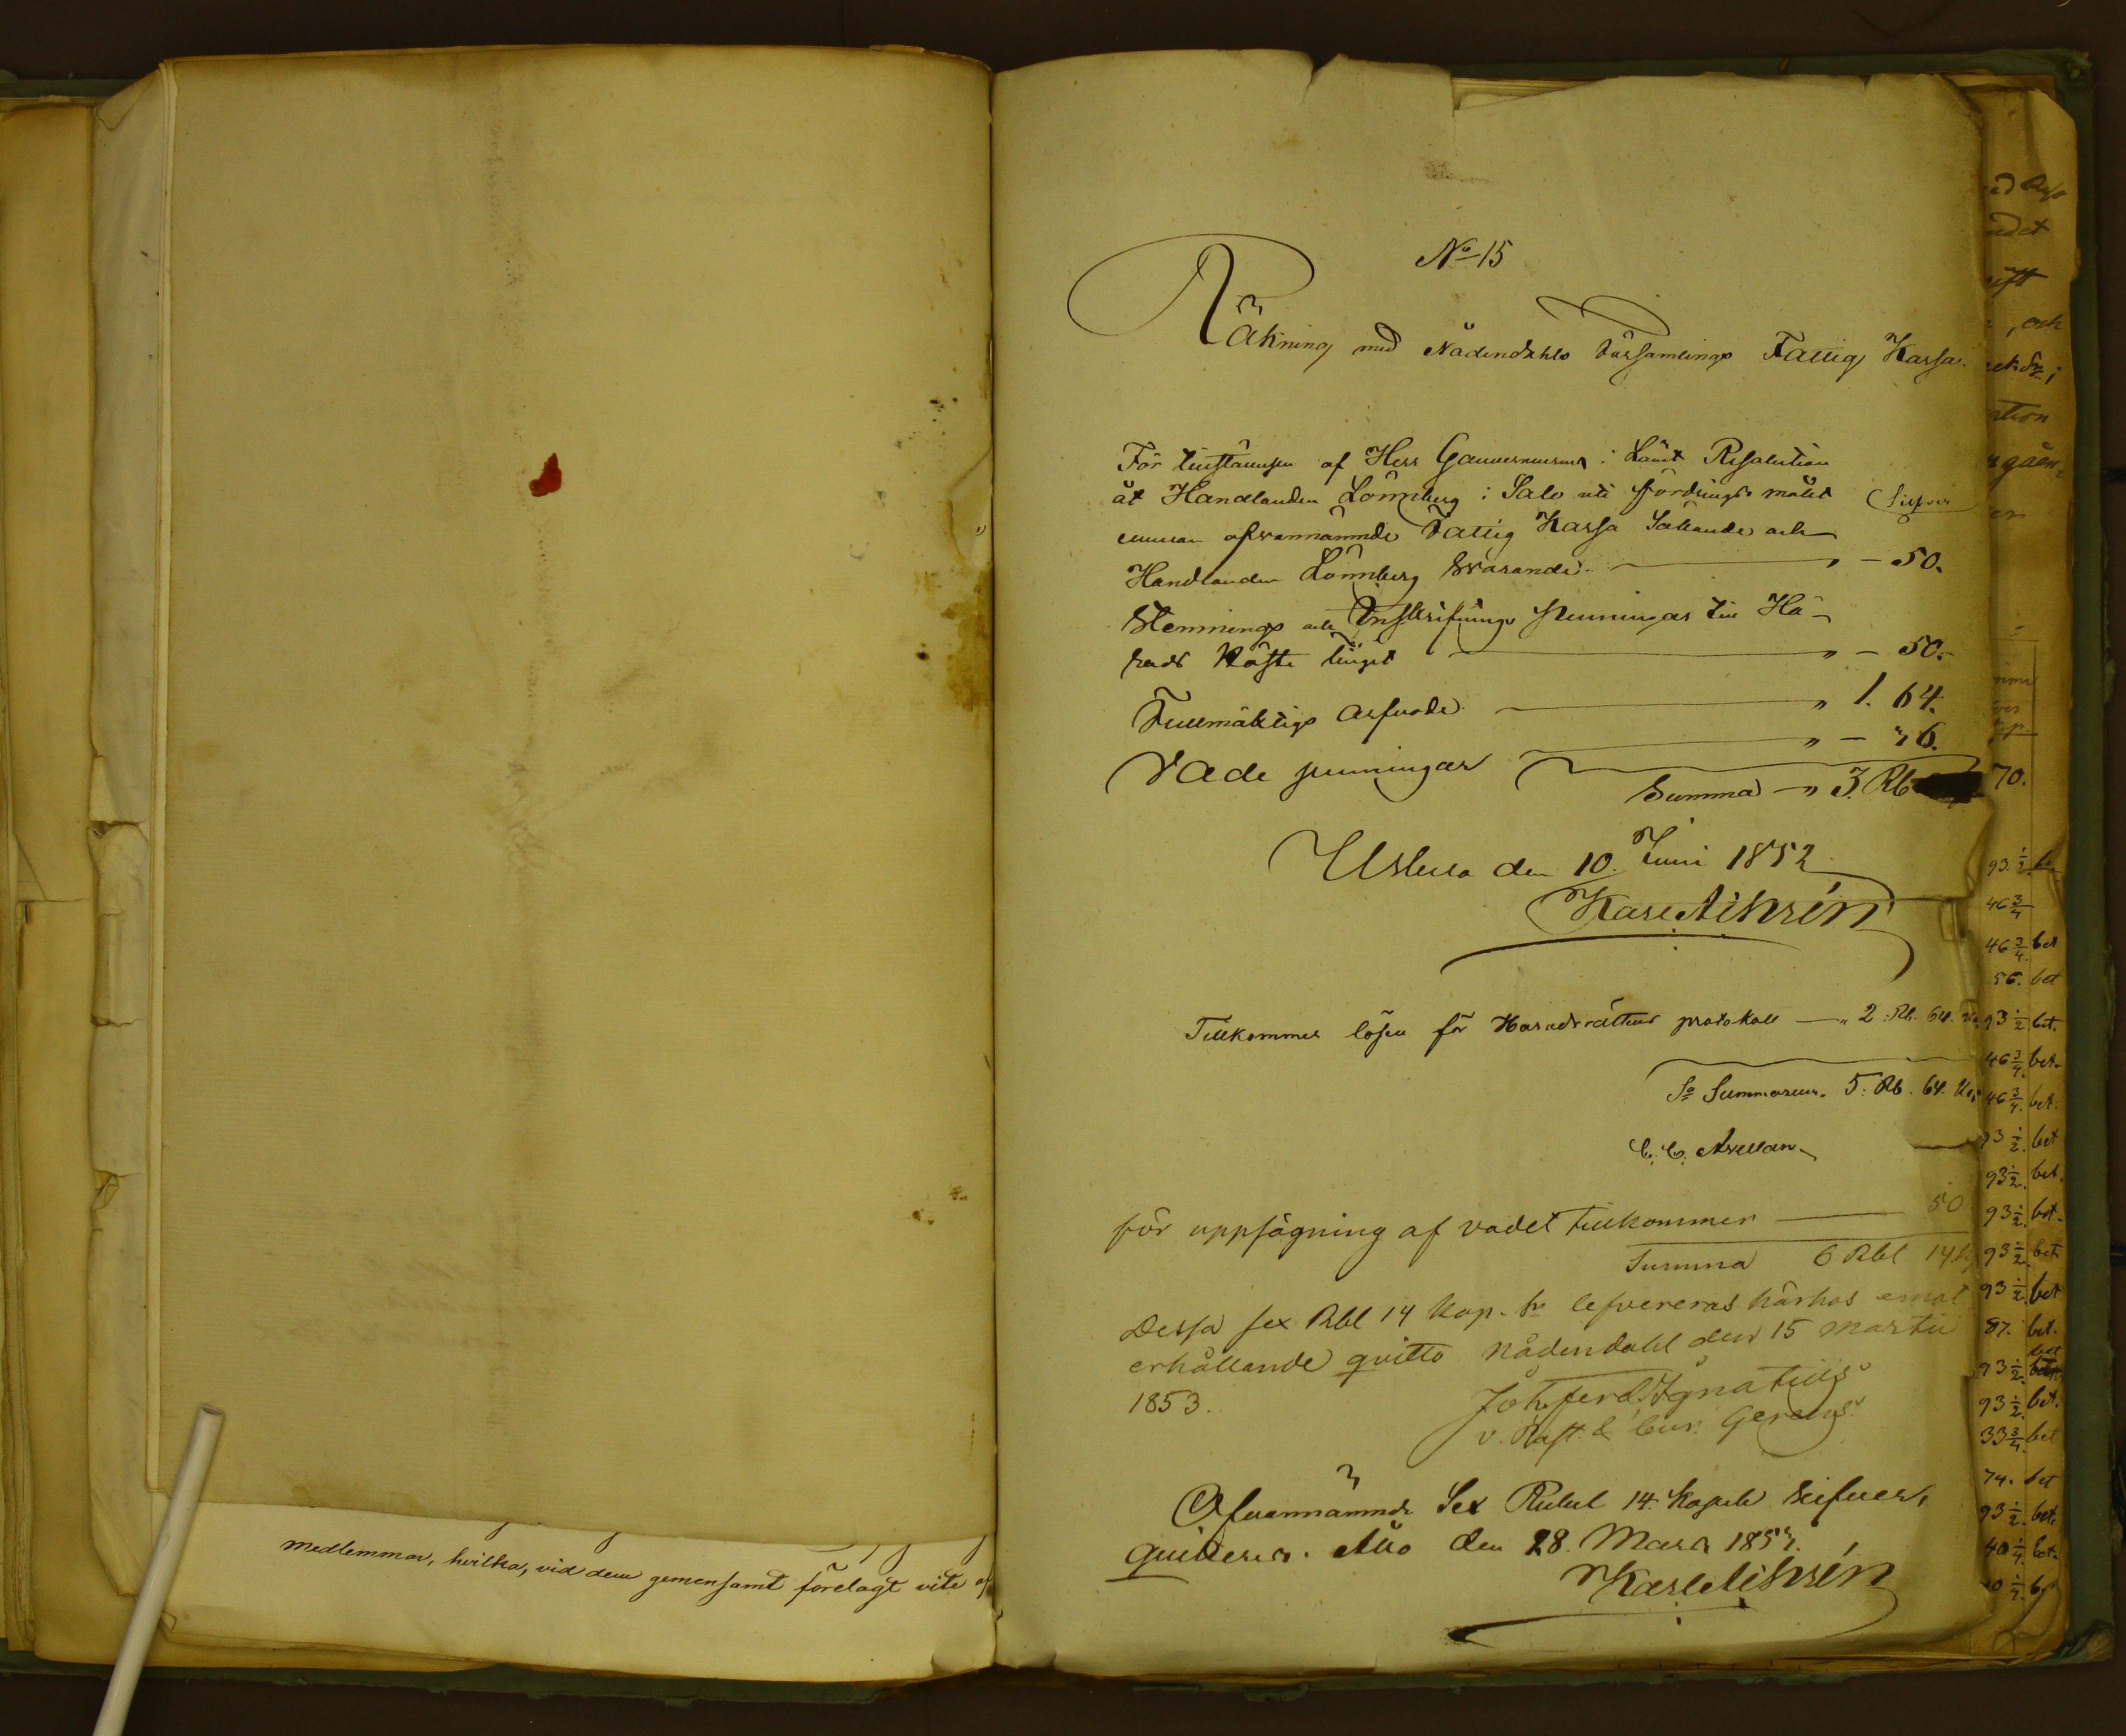 medlemmar, hvilka, vid dem gemensamt förelagt vite af
No 15
Räkning med Nådendahls Församlings Fattig Kassa.
För af Herr Gouverneurens i Länet Resolution
åt Handlanden Lönnberg i Salo uti fordrings målet
emman ofvannämnde Fattig Kassa Sökande och
Silfver
Handlanden Lönnberg Svarande " - 50.
Stemnings och Inskrifnings penningar till Hä-
rads Höfte tinget " - 50.
Fullmäktigs arfvode " 1. 64.
Vade penningar " - 36.
Summa " 3. Rb
Uskela den 10. Juni 1852
Karl
Tillkommer lösen för Häradsrättens protokoll " 2. Rb. 64.
So Summarum. 5. Rb. 64.
C. C. Arellan
för uppsägning af vadet tillkommer 50
Summa 6 Rbl 14
Dessa sex Rbl 14 kop. Sr lefvereras härhos emot
erhållande qvitto Nådendahl den 15 Martii
1853.
Joh. Ferd. Ignatius
v. Past. & Cur. Gerens.
Ofvannämnde Sex Rubel 14. Kopek Silfver,
quitteras. Åbo den 28. Mars 1853.
Karl
ndet
ift
, och
ation
en
70.
93 1/2
46 3/4
46 3/4. bet
56. bet
93 1/2. bet.
46 3/4. bet.
46 3/4. bet.
93 1/2. bet
93 1/2. bet.
93 1/2. bet.
93 1/2. bet
93 1/2. bet
87. bet.
93 1/2. bet
93 1/2. bet.
33 3/4. bet
74. bet
93 1/2. bet.
40 1/4. bet.